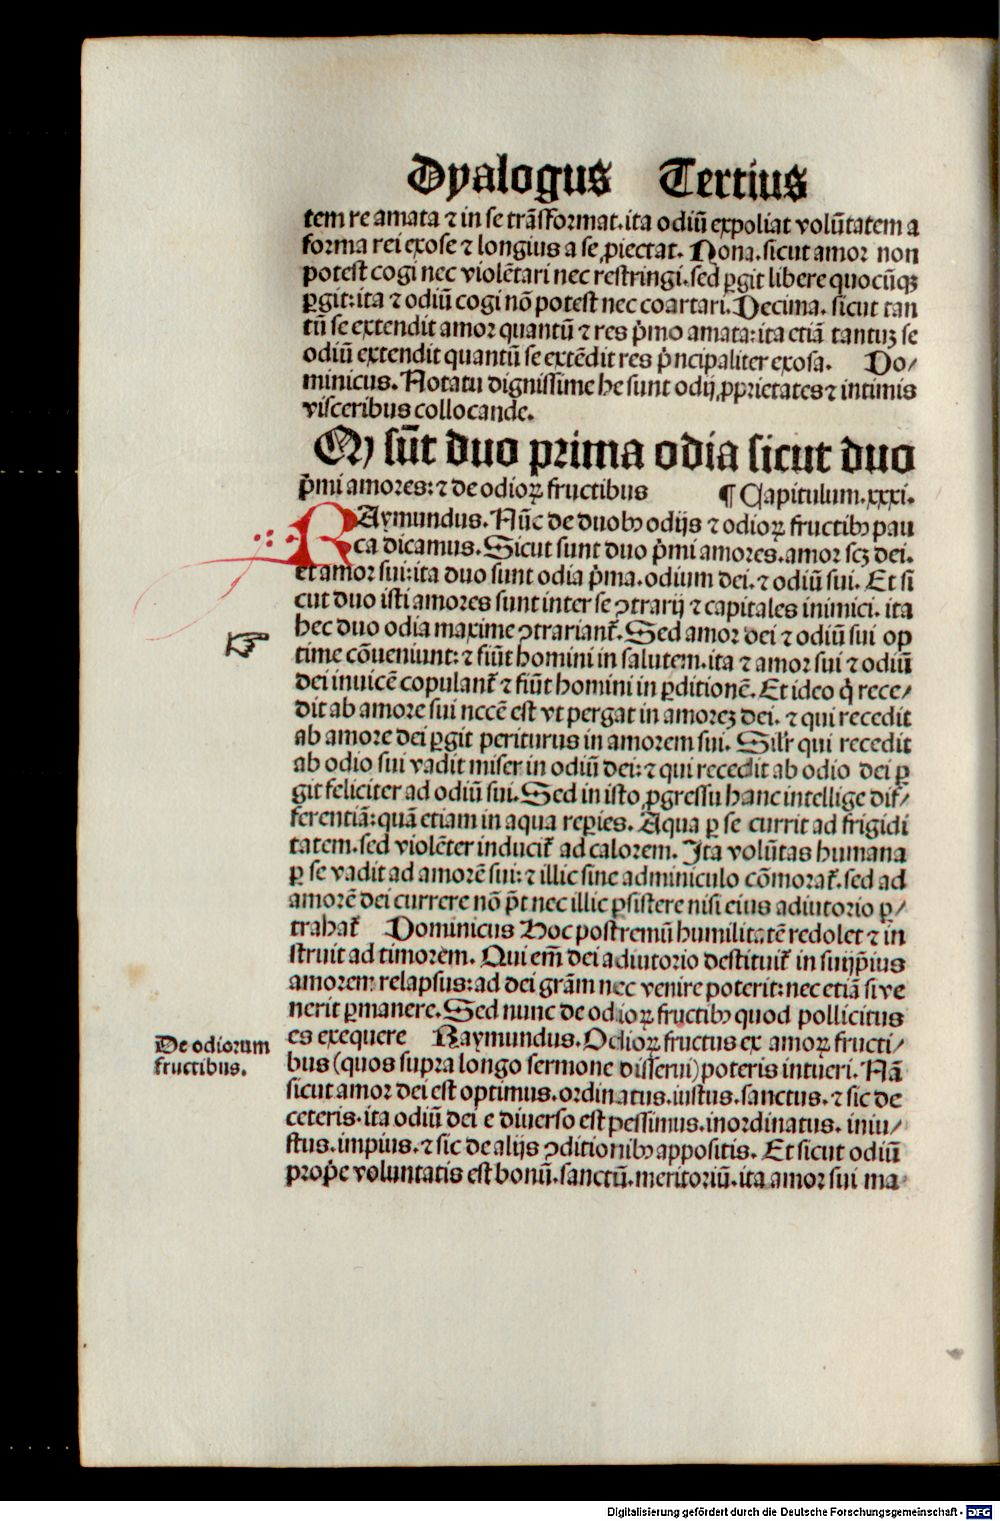 Dyalogus Tertius
tem re amata ⁊ in se trāsformat. ita odiū expoliat volūtatem a
forma rei exose ⁊ longius a se ꝓiectat. Nona. sicut amor non
potest cogi nec violētari nec restringi. sed ꝑgit libere quocūqꝫ
ꝑgit: ita ⁊ odiū cogi nō potest nec coartari. Decima. sicut tan
tū se extendit amor quantū ⁊ res p̄mo amata: ita etiā tantuꝫ se
odiū extendit quantū se extēdit res p̄ncipaliter exosa. Do/
minicus. Notatu dignissime he sunt odij ꝓprietates ⁊ intimis
visceribus collocande.
Qꝫ sūt duo prima odia sicut duo
p̄mi amores: ⁊ de odioꝝ fructibus ¶ Capitulum. xxxi.
RAymundus. Nūc de duobꝫ odijs ⁊ odioꝝ fructibꝫ pau
ca dicamus. Sicut sunt duo p̄mi amores. amor scꝫ dei.
et amor sui: ita duo sunt odia p̄ma. odium dei. ⁊ odiū sui. Et si
cut duo isti amores sunt inter se ꝯtrarij ⁊ capitales inimici. ita
hec duo odia maxime ꝯtrariant᷑. Sed amor dei ⁊ odiū sui op
time cōueniunt: ⁊ fiūt homini in salutem. ita ⁊ amor sui ⁊ odiū
dei inuicē copulant᷑ ⁊ fiūt homini in ꝑditionē. Et ideo q̇ rece/
dit ab amore sui nccē est vt pergat in amoreꝫ dei. ⁊ qui recedit
ab amore dei ꝑgit periturus in amorem sui. Sil'r qui recedit
ab odio sui vadit miser in odiū dei: ⁊ qui recedit ab odio dei ꝑ
git feliciter ad odiū sui. Sed in isto ꝓgressu hanc intellige dif/
ferentiā: quā etiam in aqua reꝑies. Aqua ꝑ se currit ad frigidi
tatem. sed violēter inducit᷑ ad calorem. Ita volūtas humana
ꝑ se vadit ad amorē sui: ⁊ illic sine adminiculo cōmorat᷑. sed ad
amorē dei currere nō p̄t nec illic ꝑsistere nisi eius adiutorio ꝓ/
trahat᷑ Dominicus Hoc postremū humilitatē redolet ⁊ in
struit ad timorem. Qui em̄ dei adiutorio destituit᷑ in sui ip̄ius
amorem relapsus: ad dei grām nec venire poterit: nec etiā si ve
nerit ꝑmanere. Sed nunc de odioꝝ fructibꝫ quod pollicitus
es exequere Raymundus. Odioꝝ fructus ex amoꝝ fructi/
bus (quos supra longo sermone disserui) poteris intueri. Nā
sicut amor dei est optimus. ordinatus. iustus. sanctus. ⁊ sic de
ceteris. ita odiū dei e diuerso est pessimus. inordinatus. iniu/
stus. impius. ⁊ sic de alijs ꝯditionibꝫ appositis. Et sicut odiū
prop̄e voluntatis est bonū. sanctū. meritoriū. ita amor sui ma
De odiorum
fructibus.
Digitalisierung gefördert durch die Deutsche Forschungsgemeinschaft - DFG